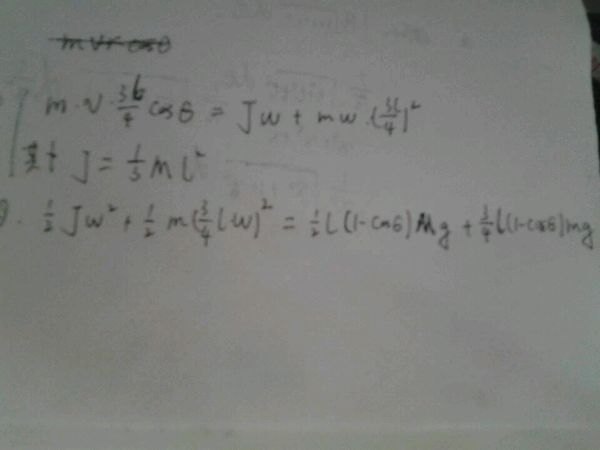 mvrcosθ
m·v·3l/4 cosθ = Jw + mw(3l/4)²
其中 J = 1/3 Ml²
1/2 Jw² + 1/2 m(3/4 lw)² = 1/2 l(1-cosθ)Mg + 3/4 l(1-cosθ)mg